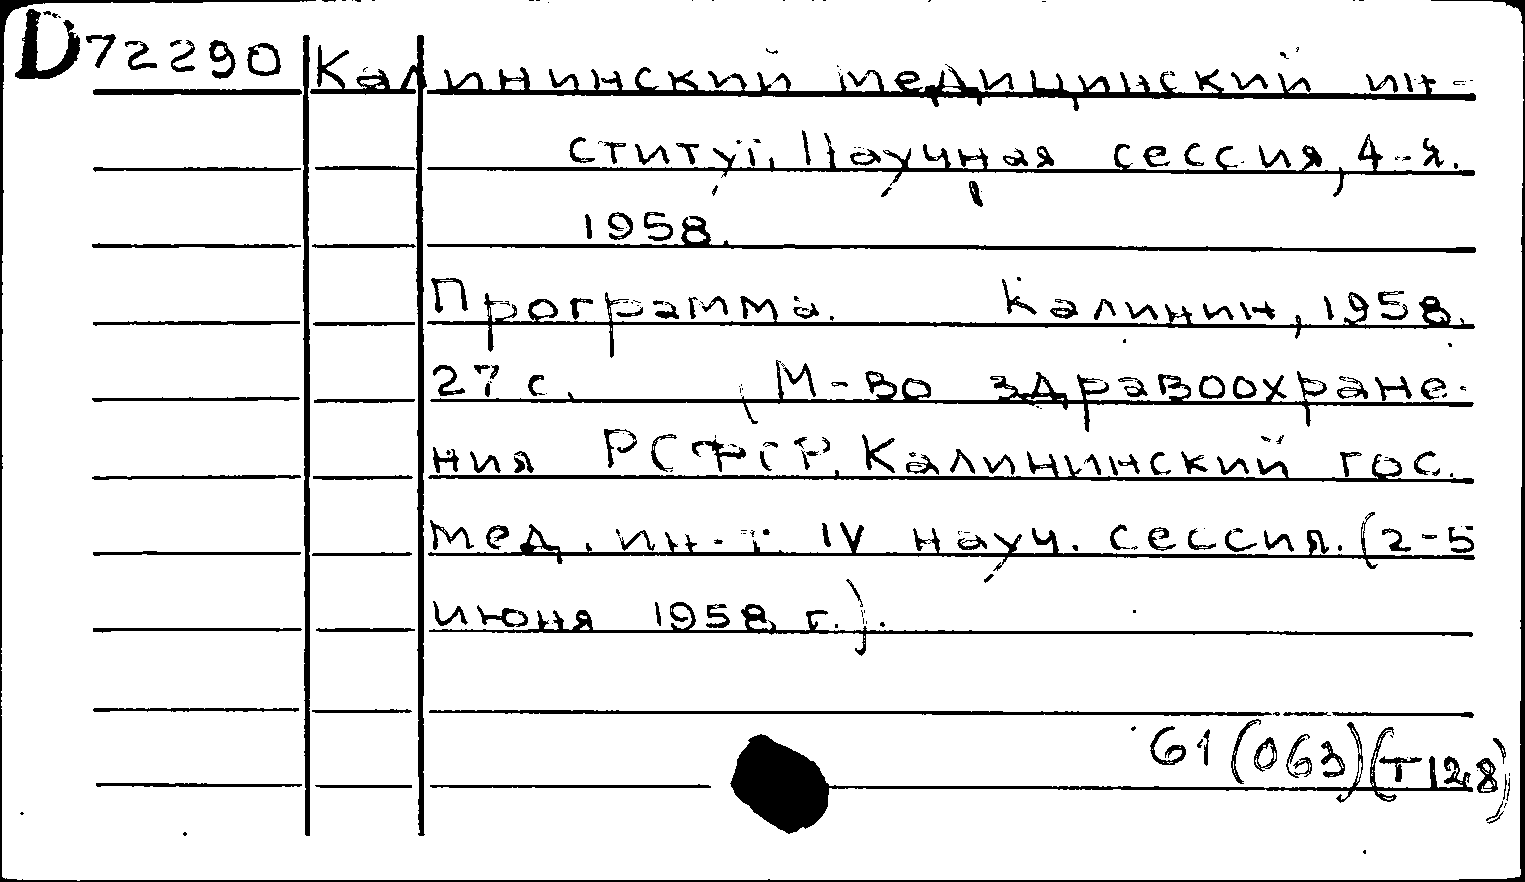 D72290 Калининский медицинский ин-
ститут, Научная сессия, 4-я.
1958.
Программа. Калинин, 1958.
27 с. (М-во здравоохране-
ния РСФСР. Калининский гос.
мед. ин-т. IV науч. сессия. (2-5
июня 1958 г.).
61(063)(T128)